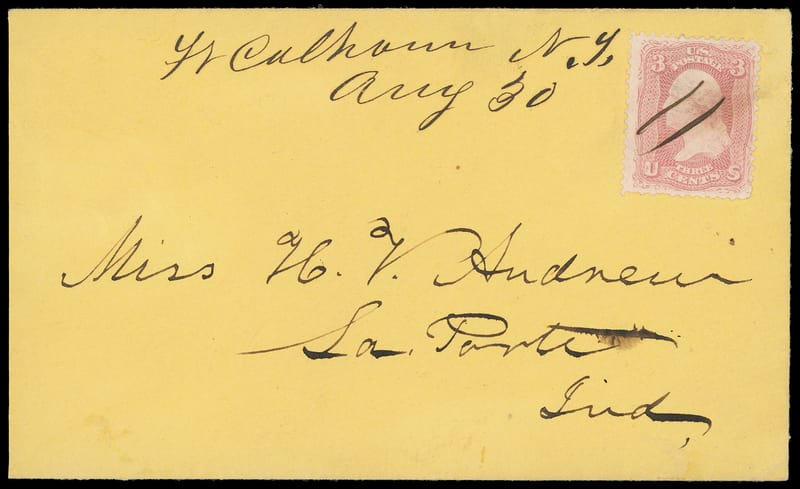 Ft Calhoun N.T.
Aug 30
3 U.S. 3
POSTAGE
U THREE S
CENTS
Miss H. V. Andrew
La Porte
Ind,